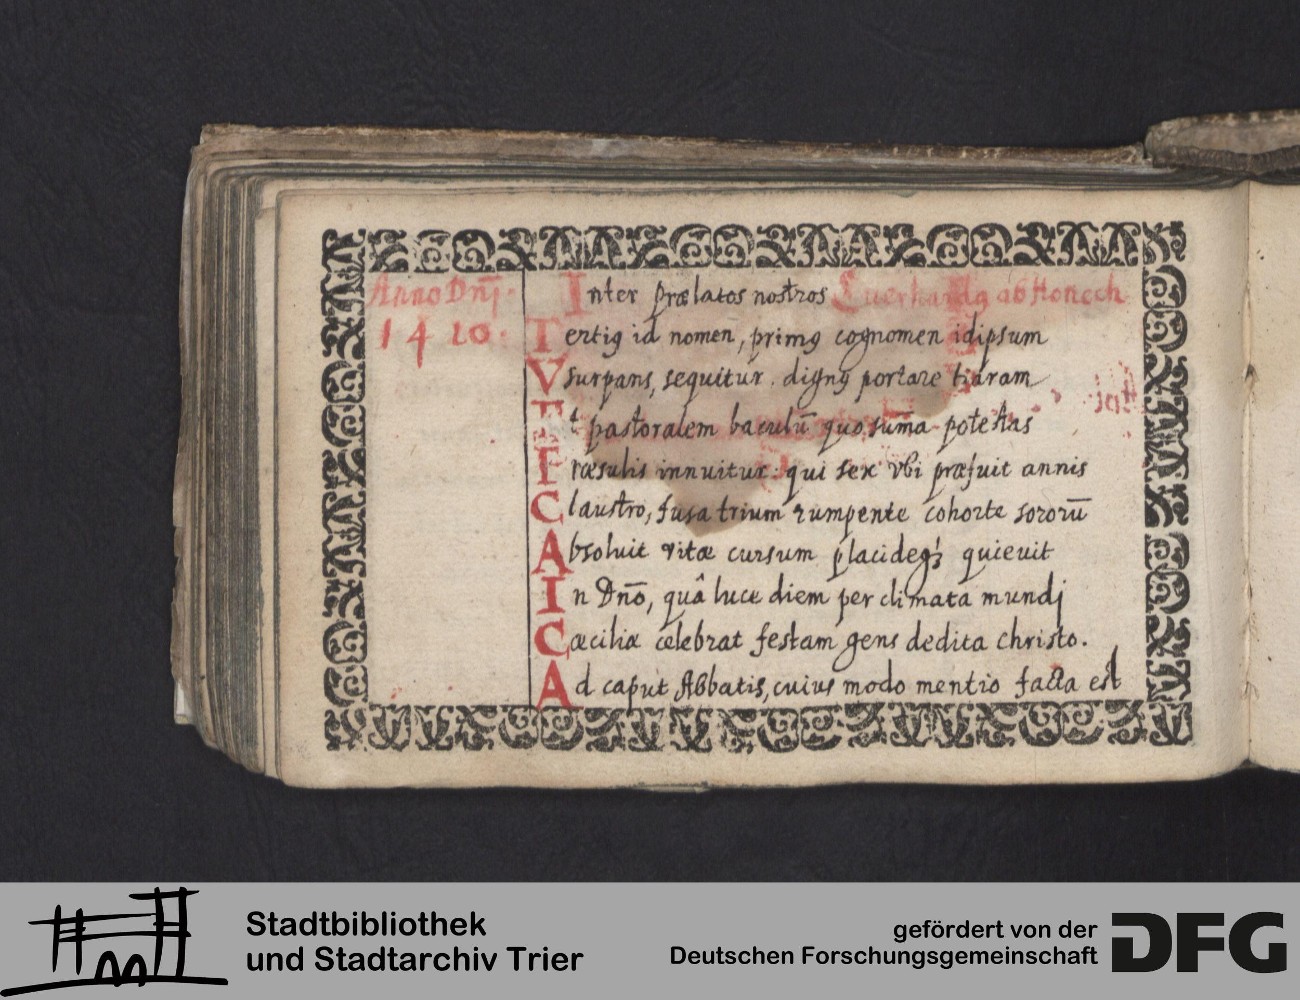 Anno Dnī.
1420.
Inter prælatos nostros Euerhardꝰ ab Honech
Tertiꝰ id nomen, primꝰ cognomen idipsum
Vsurpans, sequitur. dignꝰ portare tiaram
Et pastoralem baculū quo sum̄a potestas
Præsulis innuitur: qui sex vbi præfuit annis
Claustro, fusa trium rumpente cohorte sororū
Absoluit vitæ cursum placideqꝫ quieuit
In Dn̄o, quâ luce diem per climata mundj
Cæciliæ celebrat festam gens dedita christo.
Ad caput Abbatis, cuius modo mentio facta est
Stadtbibliothek
und Stadtarchiv Trier
gefördert von der
Deutschen Forschungsgemeinschaft
DFG